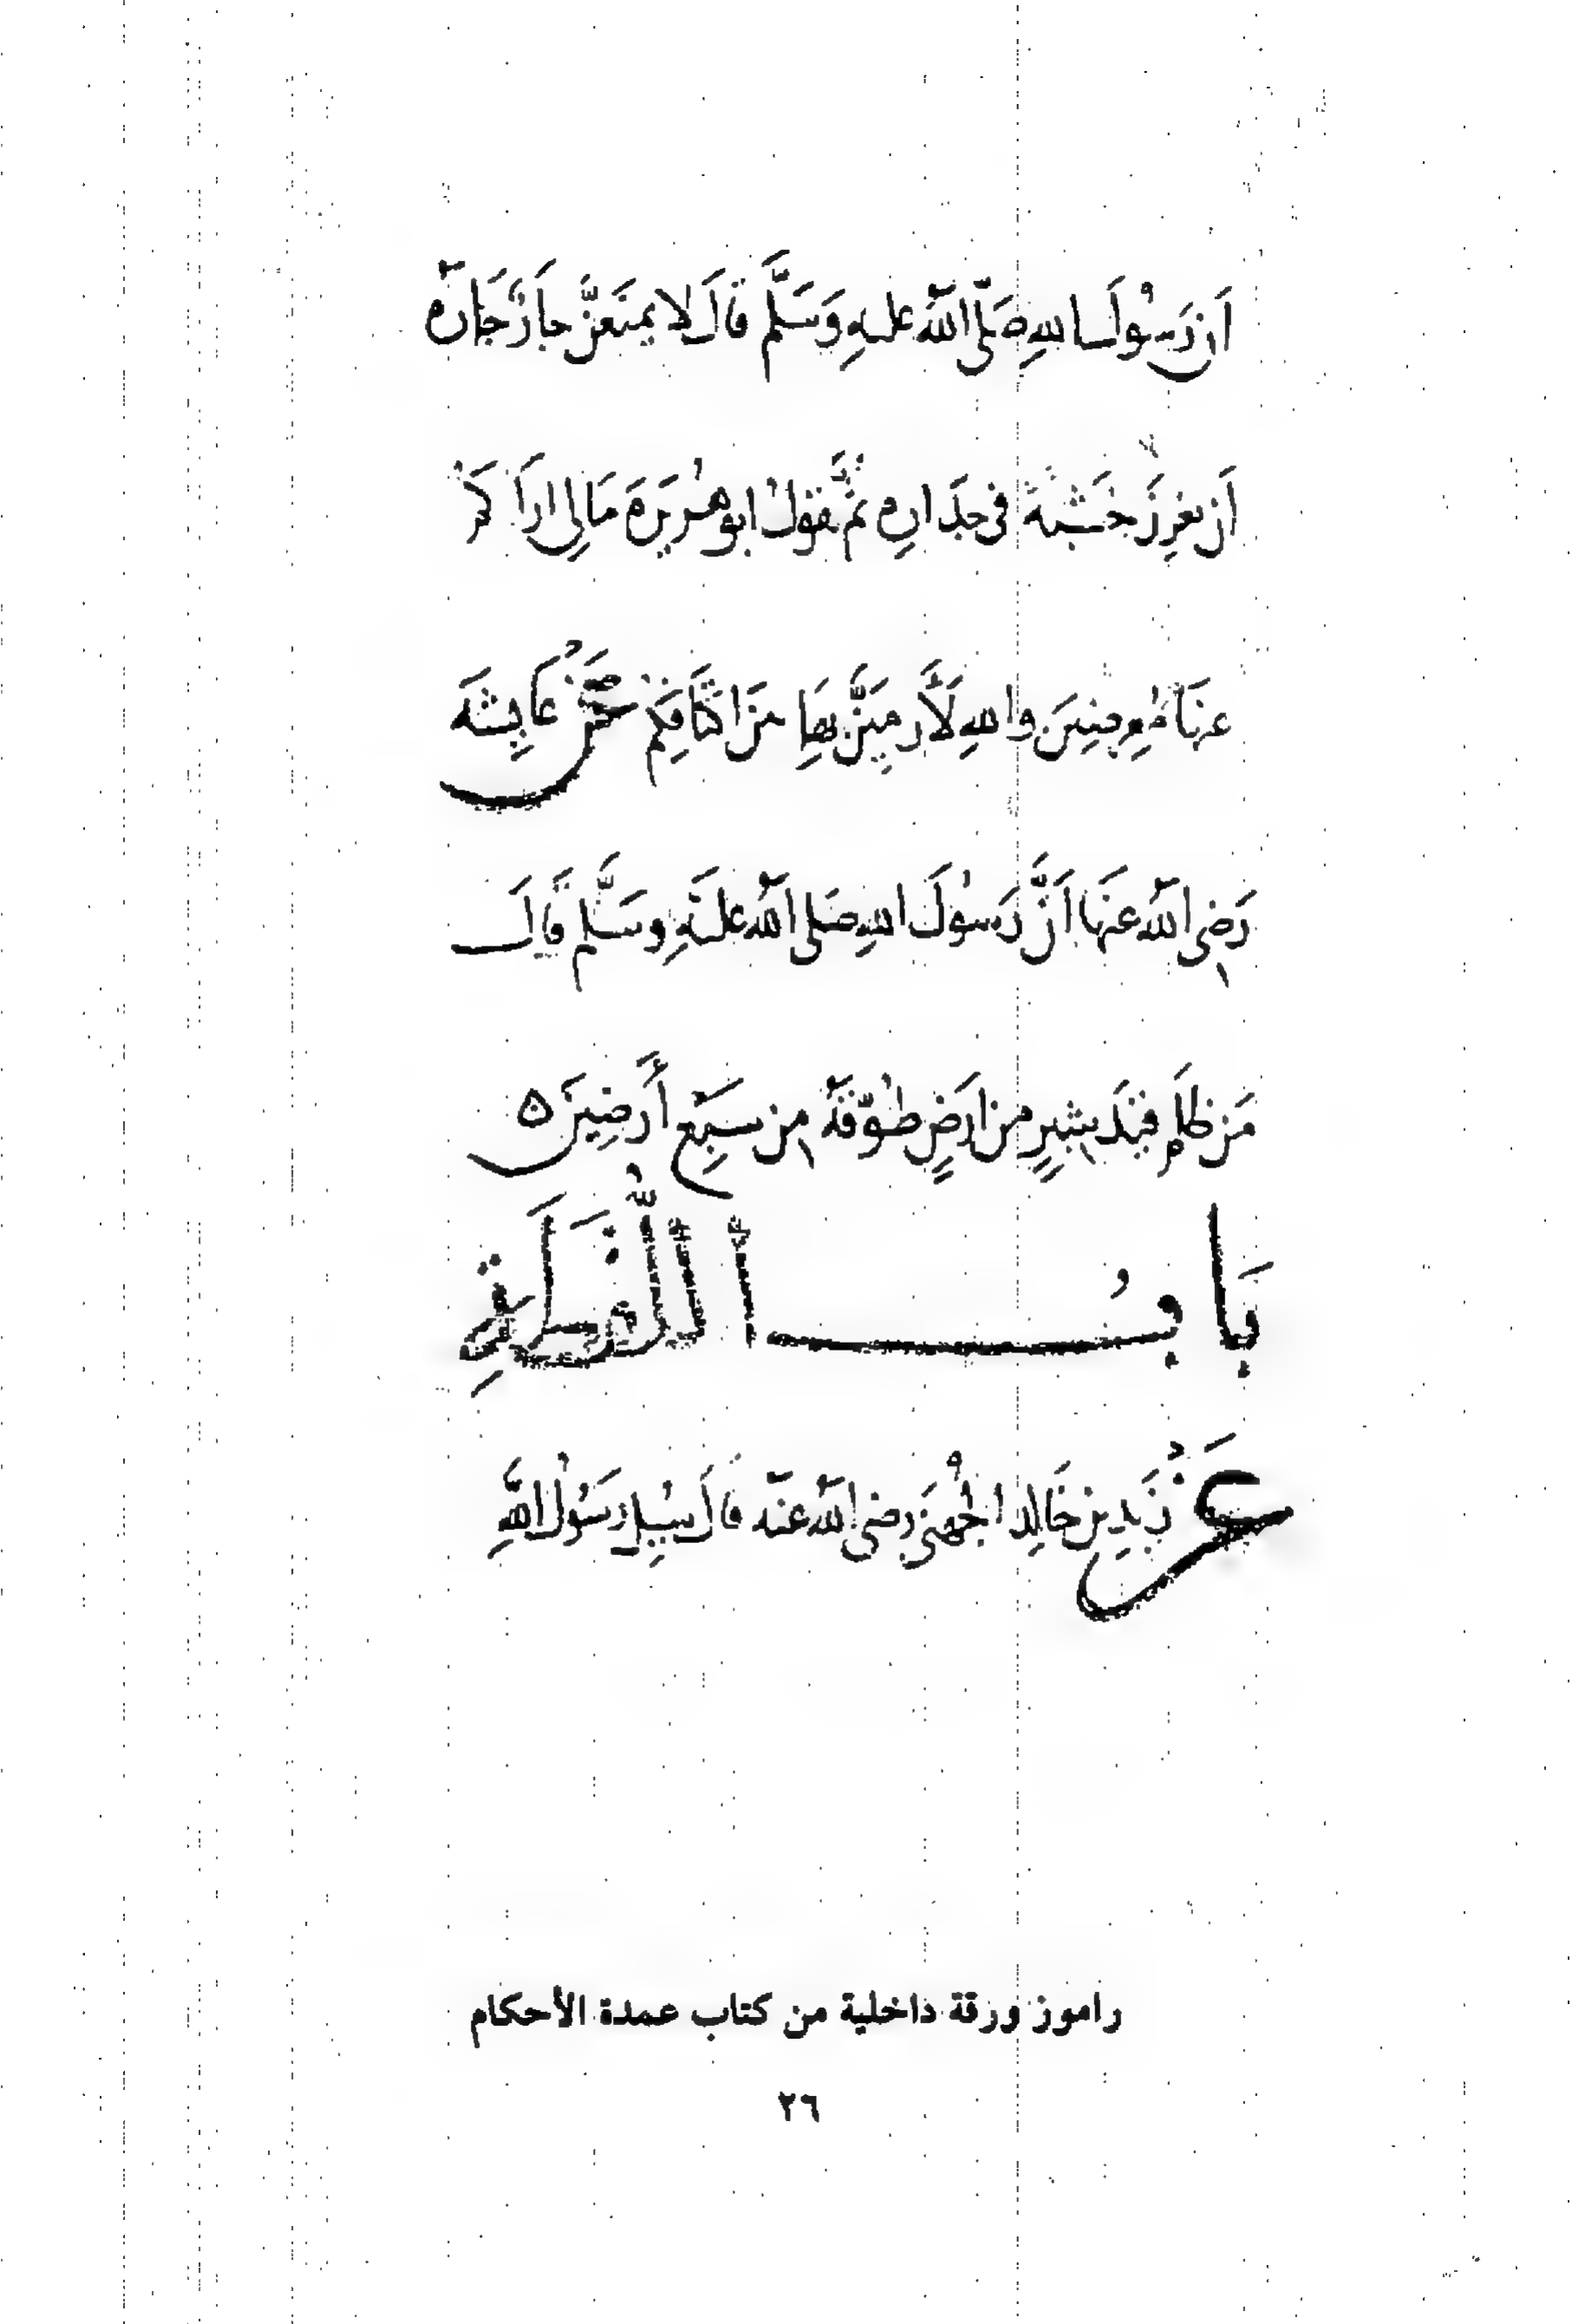 أن رسول الله صَلّى الله عليهِ وَسَلَّم قَالَ لا يمنَعَنَّ جَارٌ جَارَهُ
أن يغرِزَ خَشَبَةً في جِدَارِهِ ثمَّ يَقُولُ ابو هُريرَةَ مَالِي اراكُمْ
عنهَا مُعرِضِينَ واللهِ لَأَرمِيَنَّ بِهَا بَيْنَ اكتَافِكُمْ عَنْ عَايِشَةَ
رَضِي الله عنهَا أنَّ رَسُولَ اللهِ صَلى الله عليهِ وسَلَّم قَالَ
مَن ظَلَمَ قيدَ شِبرٍ من ارضٍ طُوِّقَهُ مِن سَبْعِ أَرضِينَ ه
بَابُ اللُّقَطَةِ
عَنْ زَيدِ بنِ خَالِدٍ الجُهَنِي رضي الله عنهُ قالَ سُيِلَ رَسُولُ اللَّهِ
راموز ورقة داخلية من كتاب عمدة الأحكام
٢٦